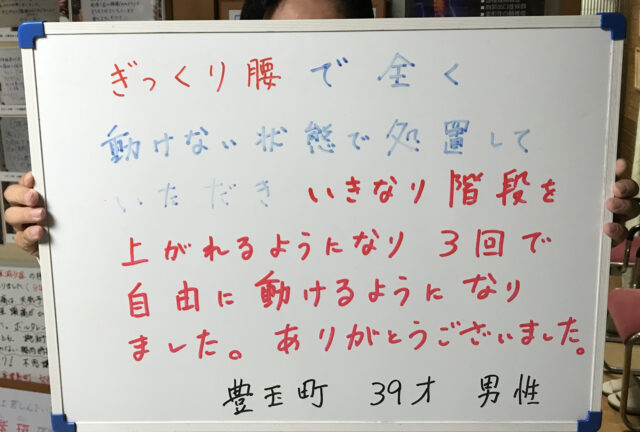 ぎっくり腰で全く
動けない状態で処置して
いただき いきなり階段を
上がれるようになり 3回で
自由に動けるようになり
ました。ありがとうございました。
豊玉町 39才 男性